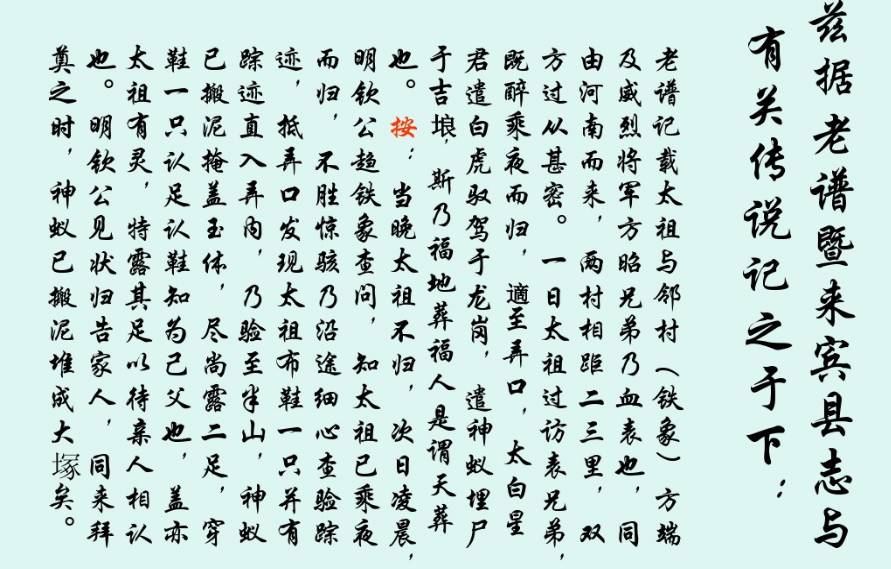 兹据老谱暨来宾县志与
有关传说记之于下：
老谱记载太祖与邻村（铁象）方端
及威烈将军方昭兄弟乃血表也，同
由河南而来，两村相距二三里，双
方过从甚密。一日太祖过访表兄弟，
既醉乘夜而归，適至弄口，太白星
君遣白虎驭驾于龙岗，遣神蚁埋尸
于吉埌，斯乃福地葬福人是谓天葬
也。按：当晚太祖不归，次日凌晨，
明钦公趋铁象查问，知太祖已乘夜
而归，不胜惊骇乃沿途细心查验踪
迹，抵弄口发现太祖布鞋一只并有
踪迹直入弄内，乃验至半山，神蚁
已搬泥掩盖玉体，尽尚露二足，穿
鞋一只认足认鞋知为己父也，盖亦
太祖有灵，特露其足以待亲人相认
也。明钦公见状归告家人，同来拜
奠之时，神蚁已搬泥堆成大塚矣。